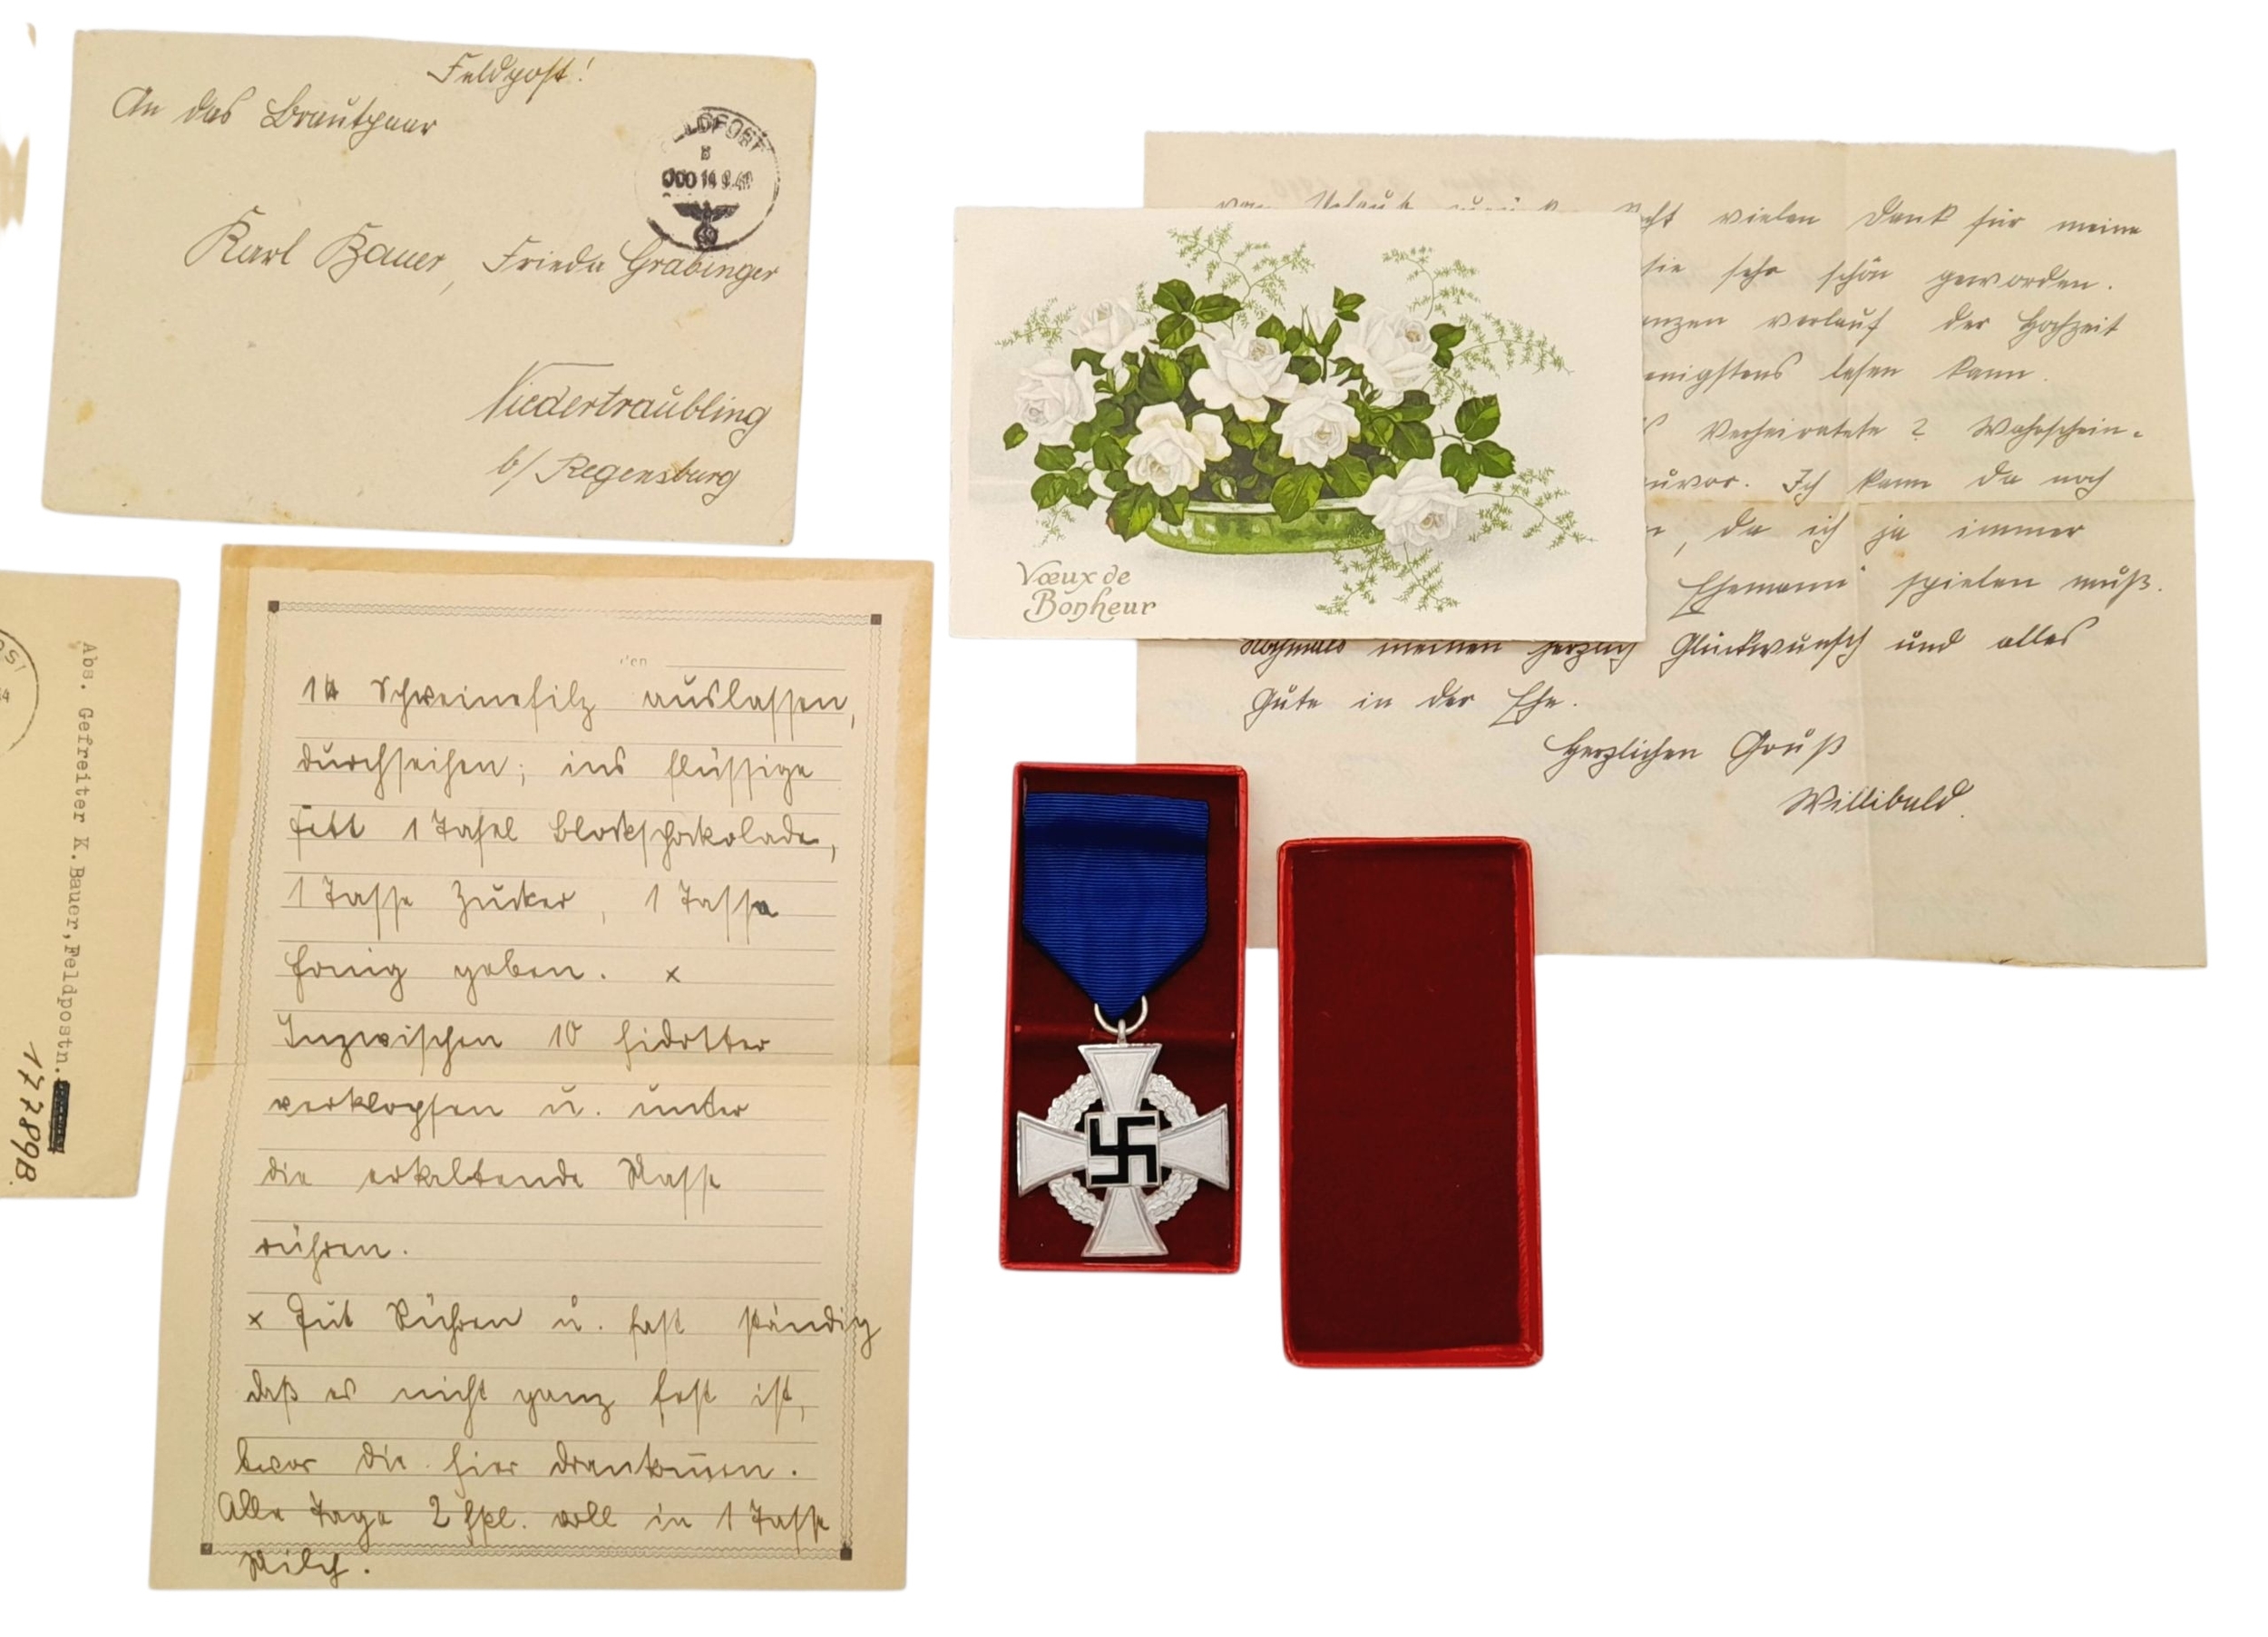 Feldpost!
An das Brautpaar
000 14 9.40
Karl Bauer, Frieda Grabinger
Niedertraubling
b/ Regensburg
Abs. Gefreiter K.Bauer, Feldpostn.
17789B
den
Schweinefilz auslassen,
durchseihen; ins flüssige
Fett 1 Tafel Blockschokolade,
1 Tasse Zucker, 1 Tasse
Honig geben. x
Inzwischen 10 Eidotter
verklopfen u. unter
die erkaltende Masse
rühren.
x Gut Rühren u. fast ständig
daß es nicht ganz fest ist,
bevor die Eier drankommen.
Alle Tage 2 Eßl. voll in 1 Tasse
Milch.
Vœux de
Bonheur
Urlaub vielen Dank für meine
sie sehr schön geworden.
verlauf der Hochzeit
lesen kann.
Verheiratete? Wahrschein-
Ich kann da noch
, da ich ja immer
Ehemann" spielen muß.
Nochmals meinen herzlich Glückwunsch und alles
Gute in der Ehe.
Herzlichen Gruß
Willibald.